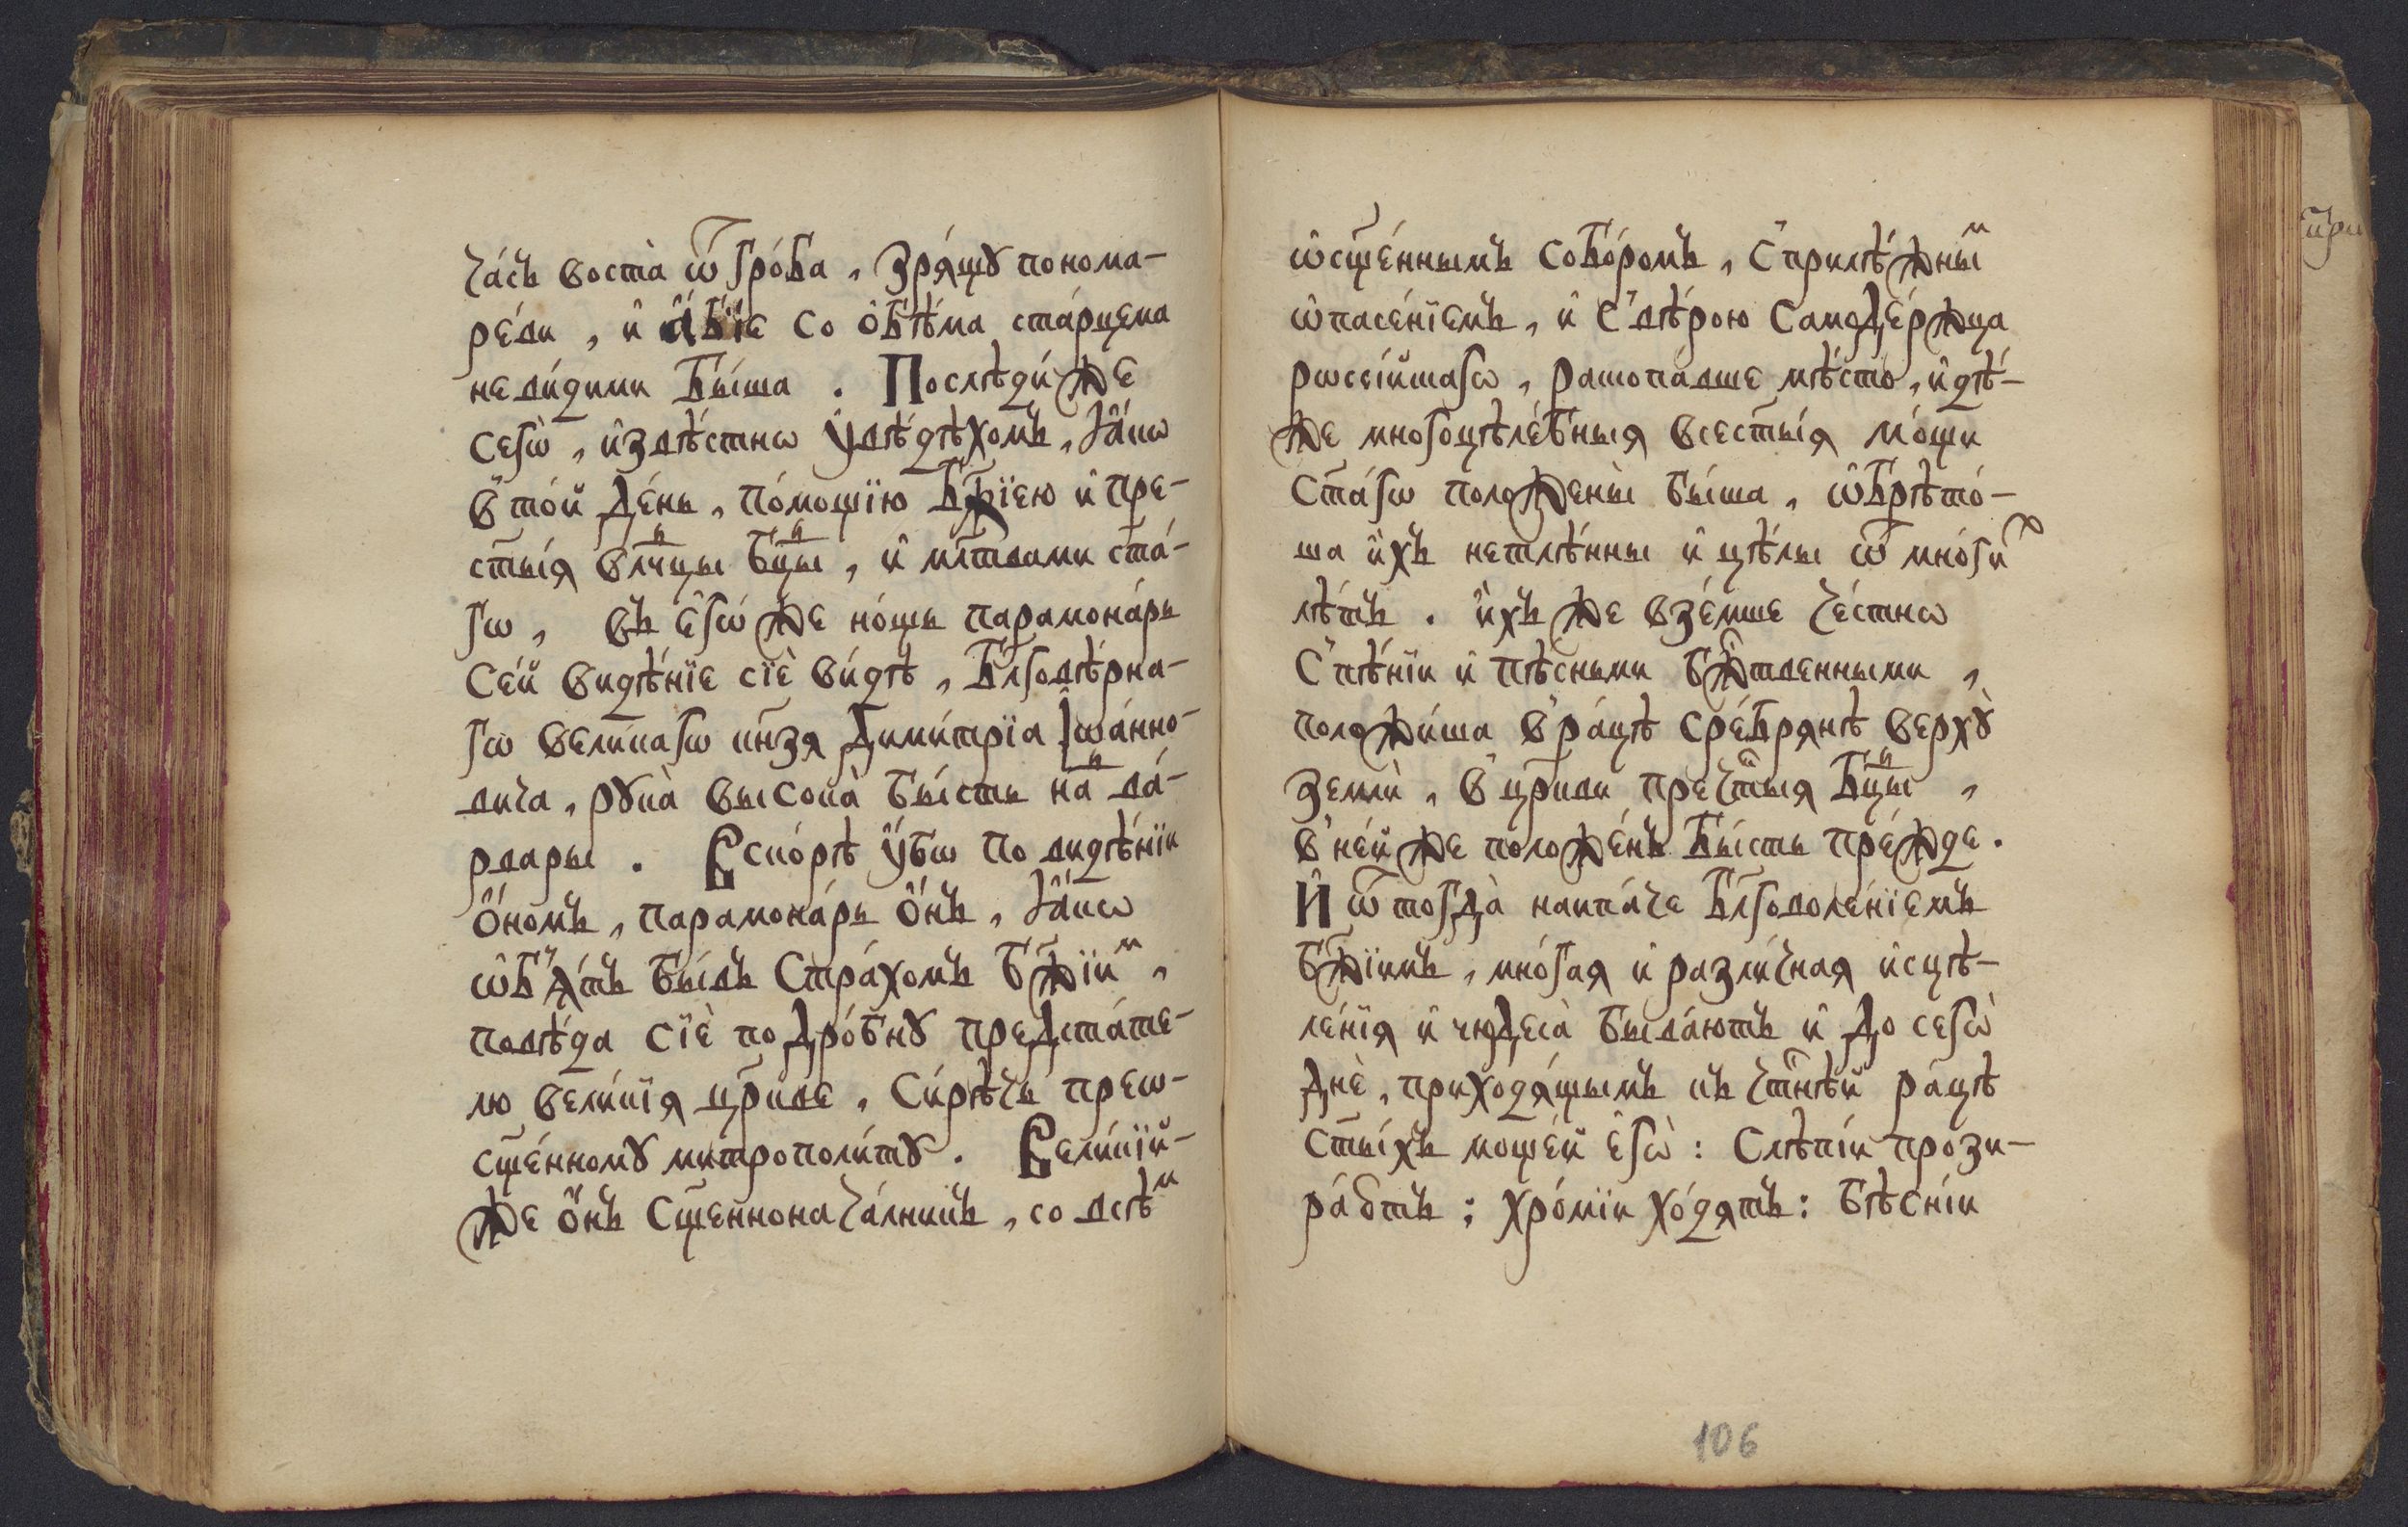 ча́съ воста̀ ѿ гро́ба, зрѧ́щꙋ понома-
ре́ви, и҆ а҆́бїе со ѻ҆бѣ́ма ста́рцема
неви́дими бы́ша. Послѣди́ же
сегѡ̀, и҆звѣ́стнѡ ᲂу҆вѣ́дѣхомъ, ꙗ҆́кѡ
в̾ то́й де́нь, по́мощїю бж҃їею и҆ пре-
ст҃ы́ѧ влⷣчцы бцⷣы, и҆ мл҃твами ст҃а́-
гѡ, въ є҆гѡ́ же но́щь парамона́рь
се́й видѣ́нїе сїѐ ви́дѣ, бл҃говѣ́рна-
гѡ вели́кагѡ кн҃зѧ Дими́трїа Іѡа́нно-
вича, рꙋка̀ высока̀ бы́сть на́д ва́-
рвары. Вско́рѣ ᲂу҆́бѡ по видѣ́нїи
ѻ҆́номъ, парамона́рь ѻ҆́нъ, ꙗ҆́кѡ
ѡ҆б̾ѧ́тъ бы́въ стра́хомъ бж҃їиⷨ,
повѣ́да сїѐ подро́бнꙋ предста́те-
лю вели́кїѧ цр҃кве, си́рѣчь прео-
сщ҃е́нномꙋ митрополи́тꙋ. Вели́кїй-
же ѻ҆́нъ сщ҃еннонача́лникъ, со всѣⷨ
ѡ҆сщ҃е́ннымъ собо́ромъ, с̾ прилѣ́жныⷨ
ѡ҆пасе́нїемъ, и҆ с̾ вѣ́рою самоде́ржца
рѡссі́йшагѡ, ракопа́вше мѣ́сто, и҆дѣ́-
же многоцѣле́бныѧ всест҃ы́ѧ мо́щи
ст҃а́гѡ положены̀ бы́ша, ѡ҆брѣто́-
ша и҆̀хъ нетлѣ́нны и҆ цѣ́лы ѿ мно́гиⷯ
лѣ́тъ. и҆̀хъ же взе́мше че́стнѡ
с̾ пѣ́нїи и҆ пѣ́сньми бж҃твенными,
положи́ша в̾ ра́цѣ сре́брѧнѣ верхꙋ̀
землѝ, в̾ цр҃кви пречⷭ҇тыѧ бцⷣы,
в̾ не́й же положе́нъ бы́сть пре́жде.
И҆ ѿ тогда̀ наипа́че бл҃говоле́нїемъ
бж҃їимъ, мно́гаѧ и҆ разли́чнаѧ и҆сцѣ-
ле́нїѧ и҆ чюдеса̀ быва́ютъ и҆ до сегѡ̀
днѐ, приходѧ́щымъ къ чⷭ҇тнѣ́й ра́цѣ
ст҃ы́хъ моще́й є҆гѡ̀: слѣпі́и прози-
ра́ютъ; хро́мїи хо́дѧтъ: бѣсні́и
106